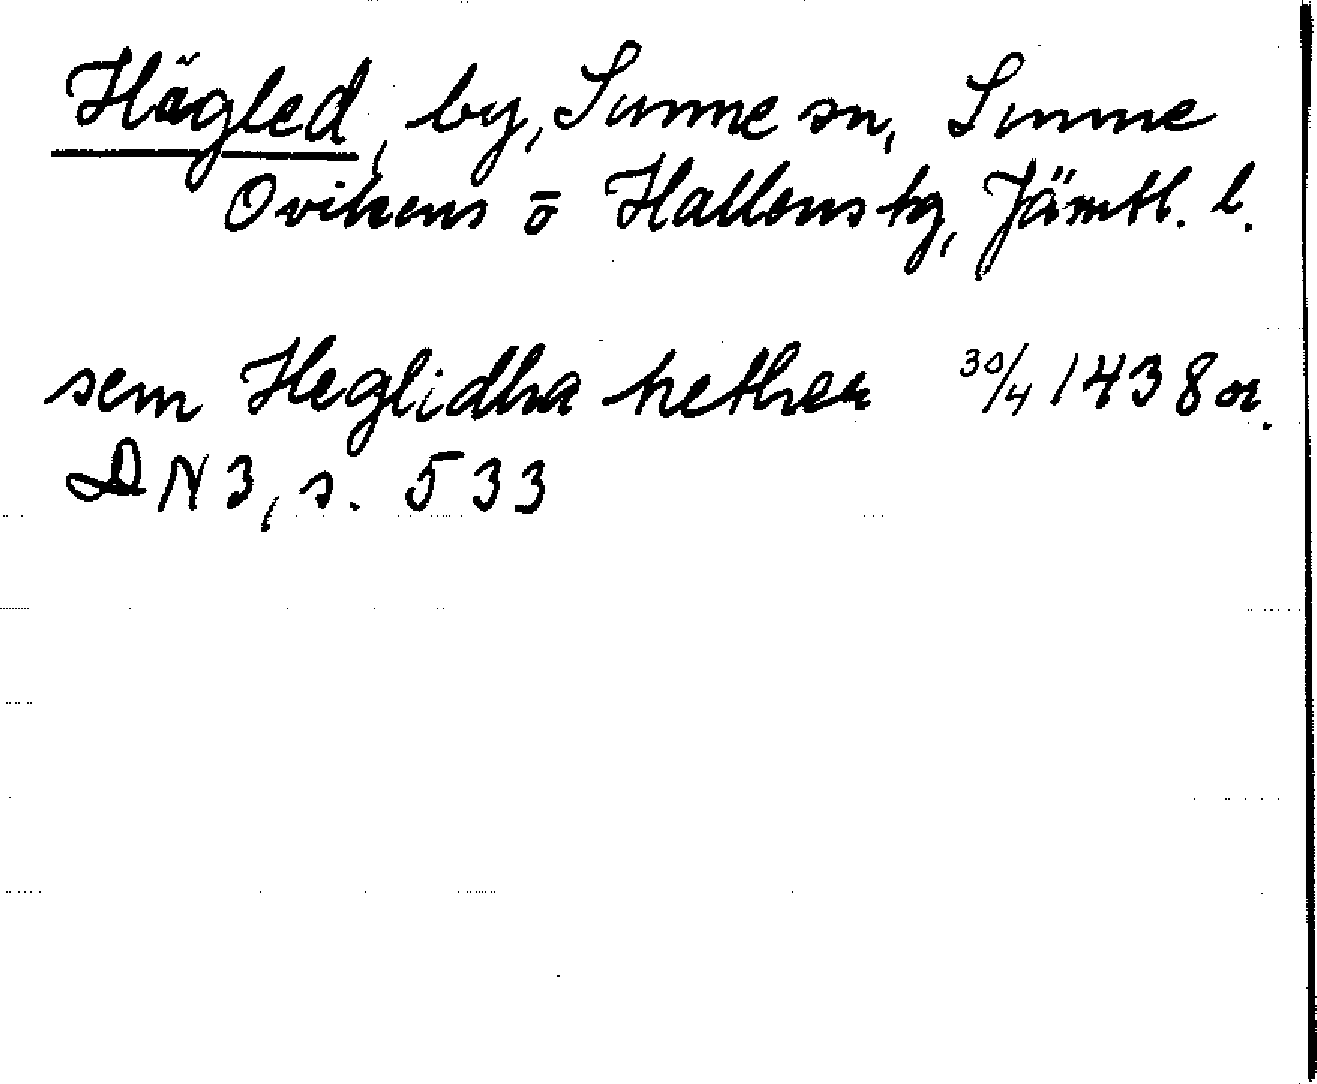 Hägled, by, Sunne sn, Sunne
Ovikens o Hallens tg, Jämtl. l.
sem Heglidha hether 30/4 1438 or.
DN 3, s. 533